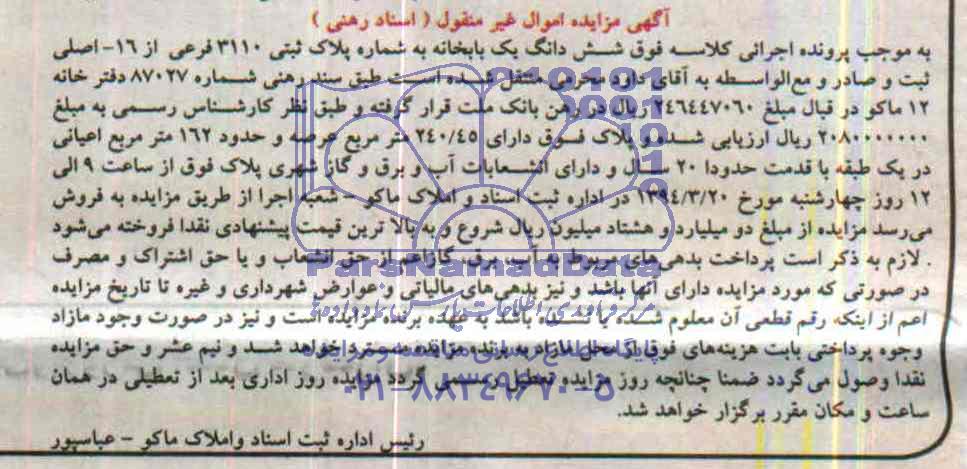 آگهی مزایده اموال غیر منقول ( اسناد رهنی )
به موجب پرونده اجرائی کلاسه فوق شش دانگ یک بابخانه به شماره پلاک ثبتی ۳۱۱۰ فرعی از ۱۶- اصلی
ثبت و صادر و مع‌الواسطه به آقای داود محرمی منتقل شده است طبق سند رهنی شماره ۸۷۰۲۷ دفتر خانه
۱۲ ماکو در قبال مبلغ ۲۴۶۴۴۷۰۶۰ ریال در رهن بانک ملت قرار گرفته و طبق نظر کارشناس رسمی به مبلغ
۲۰۸۰۰۰۰۰۰۰ ریال ارزیابی شده و پلاک فوق دارای ۲۴۰/۴۵ متر مربع عرصه و حدود ۱۶۲ متر مربع اعیانی
در یک طبقه با قدمت حدودا ۲۰ سال و دارای انشعابات آب و برق و گاز شهری پلاک فوق از ساعت ۹ الی
۱۲ روز چهارشنبه مورخ ۱۳۹۴/۳/۲۰ در اداره ثبت اسناد و املاک ماکو - شعبه اجرا از طریق مزایده به فروش
می‌رسد مزایده از مبلغ دو میلیارد و هشتاد میلیون ریال شروع و به بالا ترین قیمت پیشنهادی نقدا فروخته می‌شود
. لازم به ذکر است پرداخت بدهی‌های مربوط به آب، برق، گاز اعم از حق انشعاب و یا حق اشتراک و مصرف
در صورتی که مورد مزایده دارای آنها باشد و نیز بدهی‌های مالیاتی و عوارض شهرداری و غیره تا تاریخ مزایده
اعم از اینکه رقم قطعی آن معلوم شده یا نشده باشد به عهده برنده مزایده است و نیز در صورت وجود مازاد
وجوه پرداختی بابت هزینه‌های فوق از محل مازاد به برنده مزایده مسترد خواهد شد و نیم عشر و حق مزایده
نقدا وصول می گردد ضمنا چنانچه روز مزایده تعطیل رسمی گردد مزایده روز اداری بعد از تعطیلی در همان
ساعت و مکان مقرر برگزار خواهد شد.
رئیس اداره ثبت اسناد واملاک ماکو - عباسپور
ParsNamadData
۰۲۱-۸۸۳۴۹۶۷۰-۵